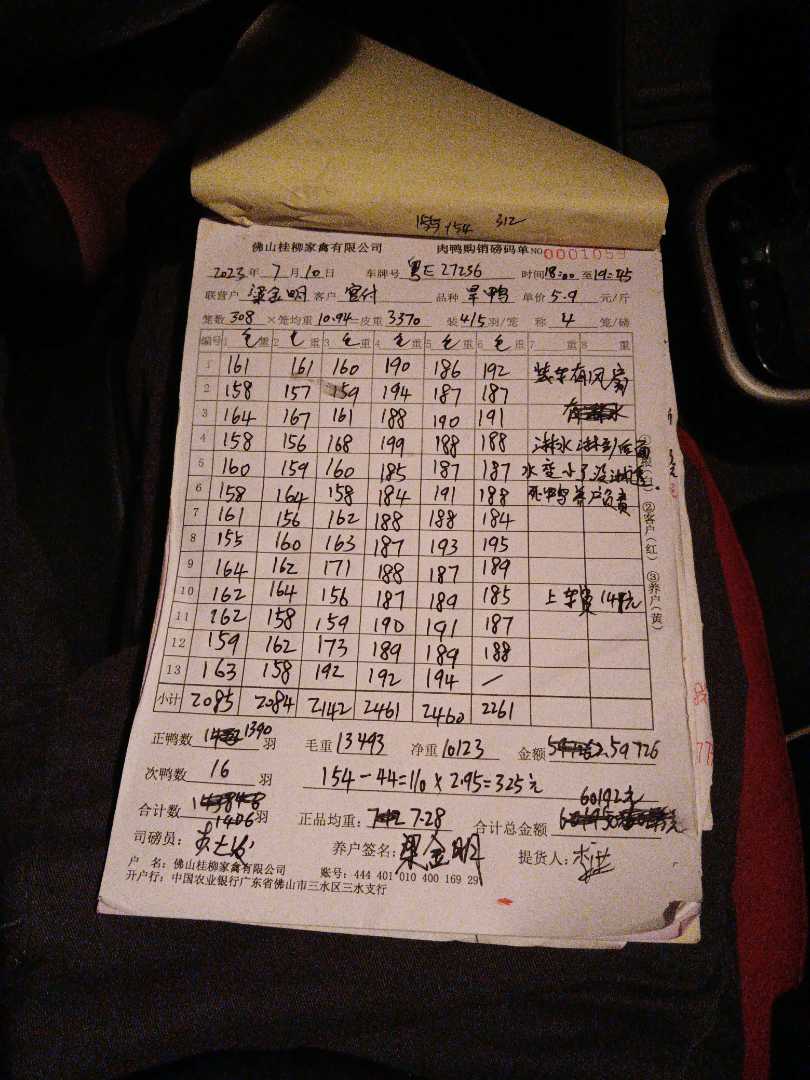 154 312
佛山桂柳家禽有限公司 肉鸭购销磅码单 NO 0001059
2023年 7月 10日 车牌号 粤E 27236 时间 18:00 至 19:45
联营户 梁金明 客户 官付 品种 旱鸭 单价 5.9 元/斤
笼数 308 ×笼均重 10.94 =皮重 3370 装 4/5 羽/笼 称 4 笼/磅
编号 1 毛重 2 毛重 3 毛重 4 毛重 5 毛重 6 毛重 7 重 8 重
1 161 161 160 190 186 192 装车有风扇
2 158 157 159 194 187 187
3 164 167 161 188 190 191
4 158 156 168 199 188 188 淋水淋到后面
5 160 159 160 185 187 187 水变小了没
6 158 164 158 184 191 188 死鸭养户负责
7 161 156 162 188 188 184
8 155 160 163 187 193 195
9 164 162 171 188 187 189
10 162 164 156 187 189 185 上车费 148元
11 162 158 159 190 191 187
12 159 162 173 189 189 188
13 163 158 192 192 194 /
小计 2085 2084 2142 2461 2460 2261
②客户(红) ③养户(黄)
正鸭数 1390 羽 毛重 13493 净重 10123 金额 59726
次鸭数 16 羽 154-44=110×2.95=325元
60192元
合计数 1406 羽 正品均重: 7.28 合计总金额
司磅员: 养户签名: 梁金明 提货人:
户 名: 佛山桂柳家禽有限公司 账号: 444 401 010 400 169 29
开户行: 中国农业银行广东省佛山市三水区三水支行